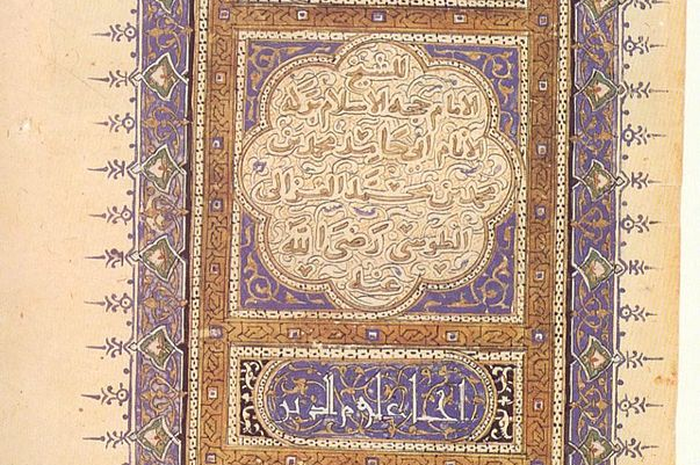 للشيخ
الامام حجه الاسلام بركه
الانام ابي حامد محمد بن
محمد بن محمد الغزالي
الطوسي رضي الله
عنه
احياء علوم الدين